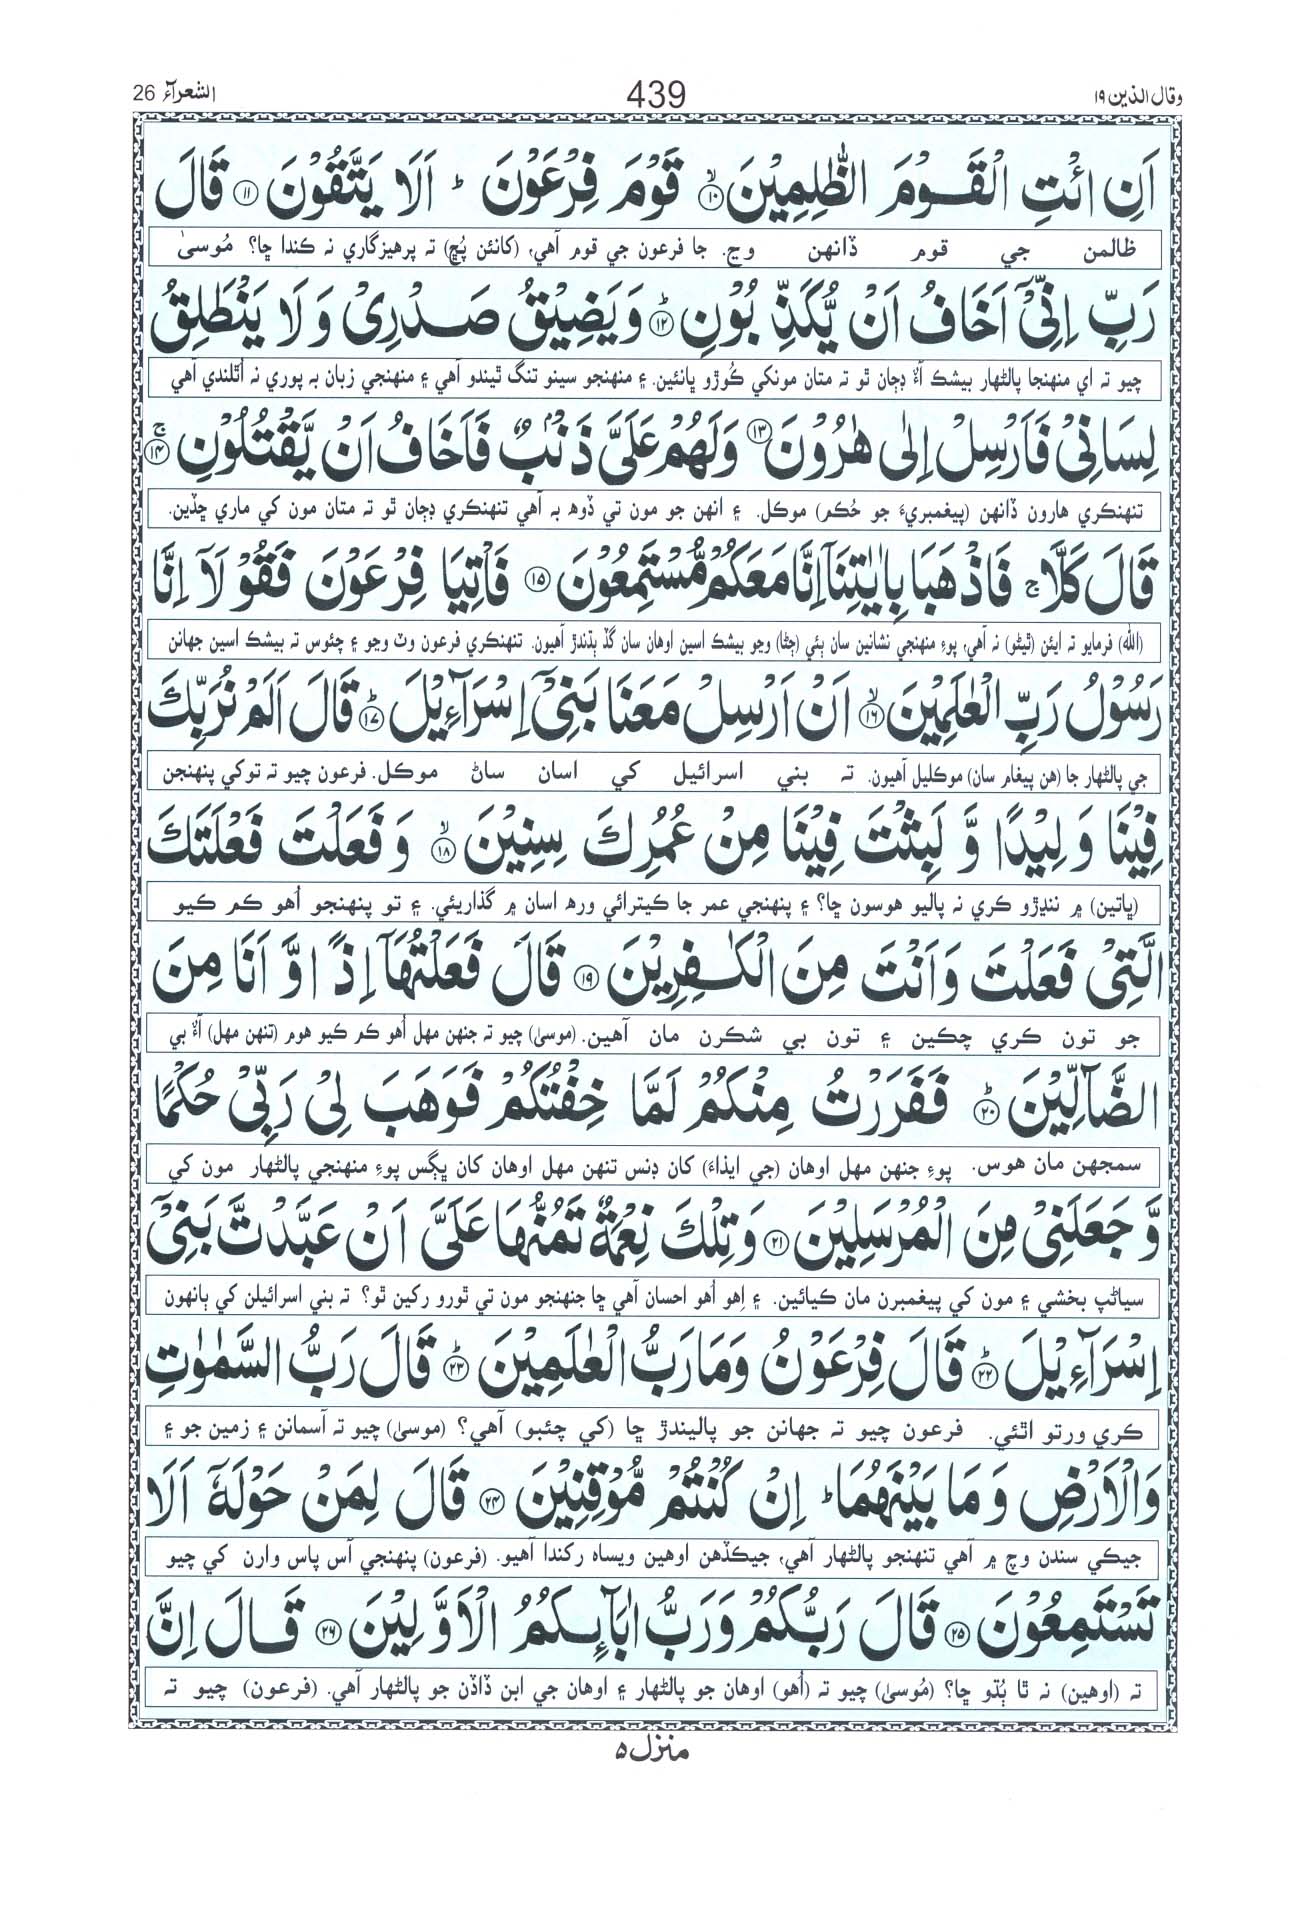 وقال الذين ١٩ 439 الشعرآء 26
اَنِ ائْتِ الْقَوْمَ الظّٰلِمِيْنَ ۙ‏﴿۱۰﴾ قَوْمَ فِرْعَوْنَ ؕ اَلَا يَتَّقُوْنَ ﴿۱۱﴾ قَالَ
ظالمن جي قوم ڏانهن وڃ. جا فرعون جي قوم آهي، (کانئن پُڇ) ته پرهيزگاري نه ڪندا ڇا؟ مُوسىٰ
رَبِّ اِنِّىْۤ اَخَافُ اَنْ يُّكَذِّبُوْنِ ؕ﴿۱۲﴾ وَيَضِيْقُ صَدْرِىْ وَلَا يَنْطَلِقُ
چيو ته اي منهنجا پالڻهار بيشڪ آءٌ ڊڄان ٿو ته متان مونکي ڪُوڙو ڀانئين. ۽ منهنجو سينو تنگ ٿيندو آهي ۽ منهنجي زبان به پوري نه اُٿلندي آهي
لِسَانِىْ فَاَرْسِلْ اِلٰى هٰرُوْنَ ﴿۱۳﴾ وَلَهُمْ عَلَىَّ ذَنْۢبٌ فَاَخَافُ اَنْ يَّقْتُلُوْنِ ۚ﴿۱۴﴾
تنهنڪري هارون ڏانهن (پيغمبريءَ جو حُڪم) موڪل. ۽ انهن جو مون تي ڏوهه به آهي تنهنڪري ڊڄان ٿو ته متان مون کي ماري ڇڏين.
قَالَ كَلَّا ۚ فَاذْهَبَا بِاٰيٰتِنَاۤ اِنَّا مَعَكُمْ مُّسْتَمِعُوْنَ ﴿۱۵﴾ فَاْتِيَا فِرْعَوْنَ فَقُوْلَاۤ اِنَّا
(الله) فرمايو ته ايئن (ٿيڻو) نه آهي، پوءِ منهنجي نشانين سان ٻئي (ڄڻا) وڃو بيشڪ اسين اوهان سان گڏ ٻڌندڙ آهيون. تنهنڪري فرعون وٽ وڃو ۽ چئوس ته بيشڪ اسين جهانن
رَسُوْلُ رَبِّ الْعٰلَمِيْنَ ۙ﴿۱۶﴾ اَنْ اَرْسِلْ مَعَنَا بَنِىْۤ اِسْرَآءِيْلَ ؕ﴿۱۷﴾ قَالَ اَلَمْ نُرَبِّكَ
جي پالڻهار جا (هن پيغام سان) موڪليل آهيون. ته بني اسرائيل کي اسان ساڻ موڪل. فرعون چيو ته توکي پنهنجن
فِيْنَا وَلِيْدًا وَّلَبِثْتَ فِيْنَا مِنْ عُمُرِكَ سِنِيْنَ ۙ﴿۱۸﴾ وَفَعَلْتَ فَعْلَتَكَ
(ڀاتين) ۾ ننڍڙو ڪري نه پاليو هوسون ڇا؟ ۽ پنهنجي عمر جا ڪيترائي ورهه اسان ۾ گذاريئي. ۽ تو پنهنجو اُهو ڪم ڪيو
الَّتِىْ فَعَلْتَ وَاَنْتَ مِنَ الْكٰفِرِيْنَ ﴿۱۹﴾ قَالَ فَعَلْتُهَاۤ اِذًا وَّاَنَا مِنَ
جو تون ڪري چڪين ۽ تون بي شڪرن مان آهين. (موسىٰ) چيو ته جنهن مهل اُهو ڪم ڪيو هوم (تنهن مهل) آءٌ بي
الضَّآلِّيْنَ ؕ﴿۲۰﴾ فَفَرَرْتُ مِنْكُمْ لَمَّا خِفْتُكُمْ فَوَهَبَ لِىْ رَبِّىْ حُكْمًا
سمجهن مان هوس. پوءِ جنهن مهل اوهان (جي ايذاءَ) کان ڊنس تنهن مهل اوهان کان ڀڳس پوءِ منهنجي پالڻهار مون کي
وَّجَعَلَنِىْ مِنَ الْمُرْسَلِيْنَ ﴿۲۱﴾ وَتِلْكَ نِعْمَةٌ تَمُنُّهَا عَلَىَّ اَنْ عَبَّدْتَّ بَنِىْۤ
سياڻپ بخشي ۽ مون کي پيغمبرن مان ڪيائين. ۽ اِهو اُهو احسان آهي ڇا جنهنجو مون تي ٿورو رکين ٿو؟ ته بني اسرائيلن کي ٻانهون
اِسْرَآءِيْلَ ؕ﴿۲۲﴾ قَالَ فِرْعَوْنُ وَمَا رَبُّ الْعٰلَمِيْنَ ؕ﴿۲۳﴾ قَالَ رَبُّ السَّمٰوٰتِ
ڪري ورتو اٿئي. فرعون چيو ته جهانن جو پاليندڙ ڇا (کي چئبو) آهي؟ (موسىٰ) چيو ته آسمانن ۽ زمين جو ۽
وَالْاَرْضِ وَمَا بَيْنَهُمَا ؕ اِنْ كُنْتُمْ مُّوْقِنِيْنَ ﴿۲۴﴾ قَالَ لِمَنْ حَوْلَهٗۤ اَلَا
جيڪي سندن وچ ۾ آهي تنهنجو پالڻهار آهي، جيڪڏهن اوهين ويساه رکندا آهيو. (فرعون) پنهنجي آس پاس وارن کي چيو
تَسْتَمِعُوْنَ ﴿۲۵﴾ قَالَ رَبُّكُمْ وَرَبُّ اٰبَآئِكُمُ الْاَوَّلِيْنَ ﴿۲۶﴾ قَالَ اِنَّ
ته (اوهين) نه ٿا ٻُڌو ڇا؟ (مُوسىٰ) چيو ته (اُهو) اوهان جو پالڻهار ۽ اوهان جي ابن ڏاڏن جو پالڻهار آهي. (فرعون) چيو ته
منزل ٥